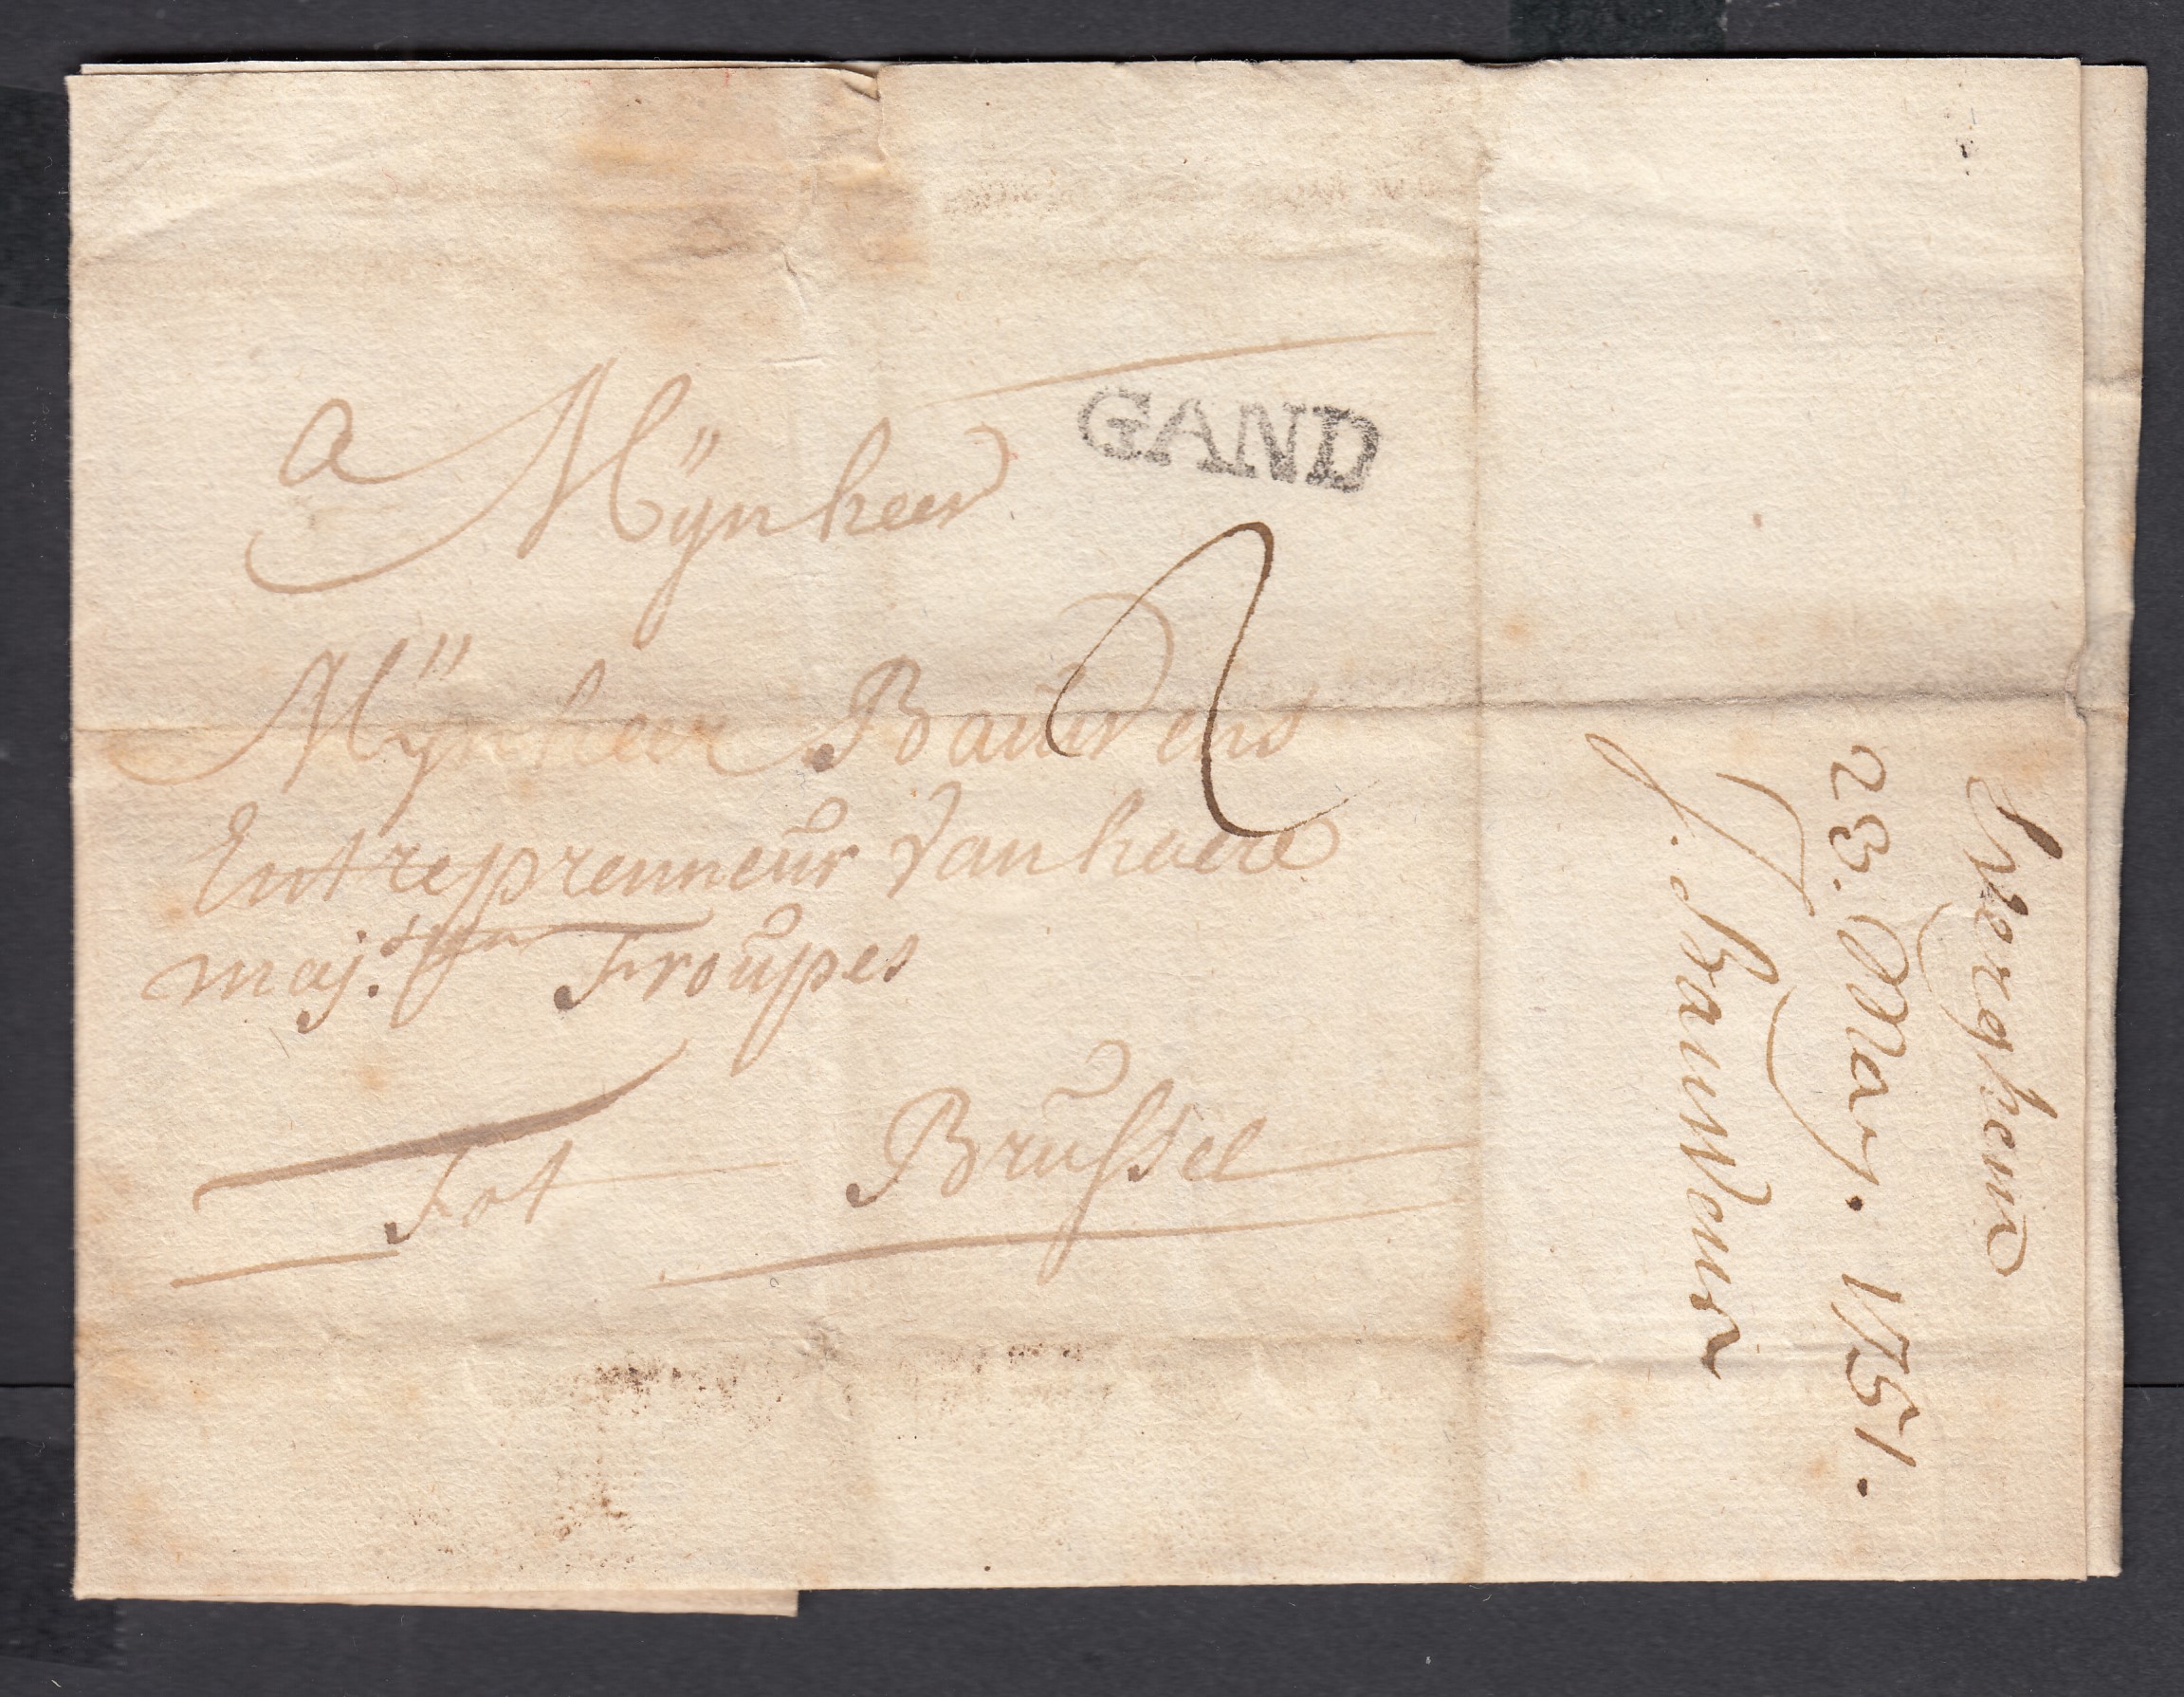 a Mÿnheer
GAND
2
Mÿnheer Bauwens
Entreprenneur van haere
maj. Troupes
Tot Brussel
Everghem
28. May. 1751.
J. Bauwens